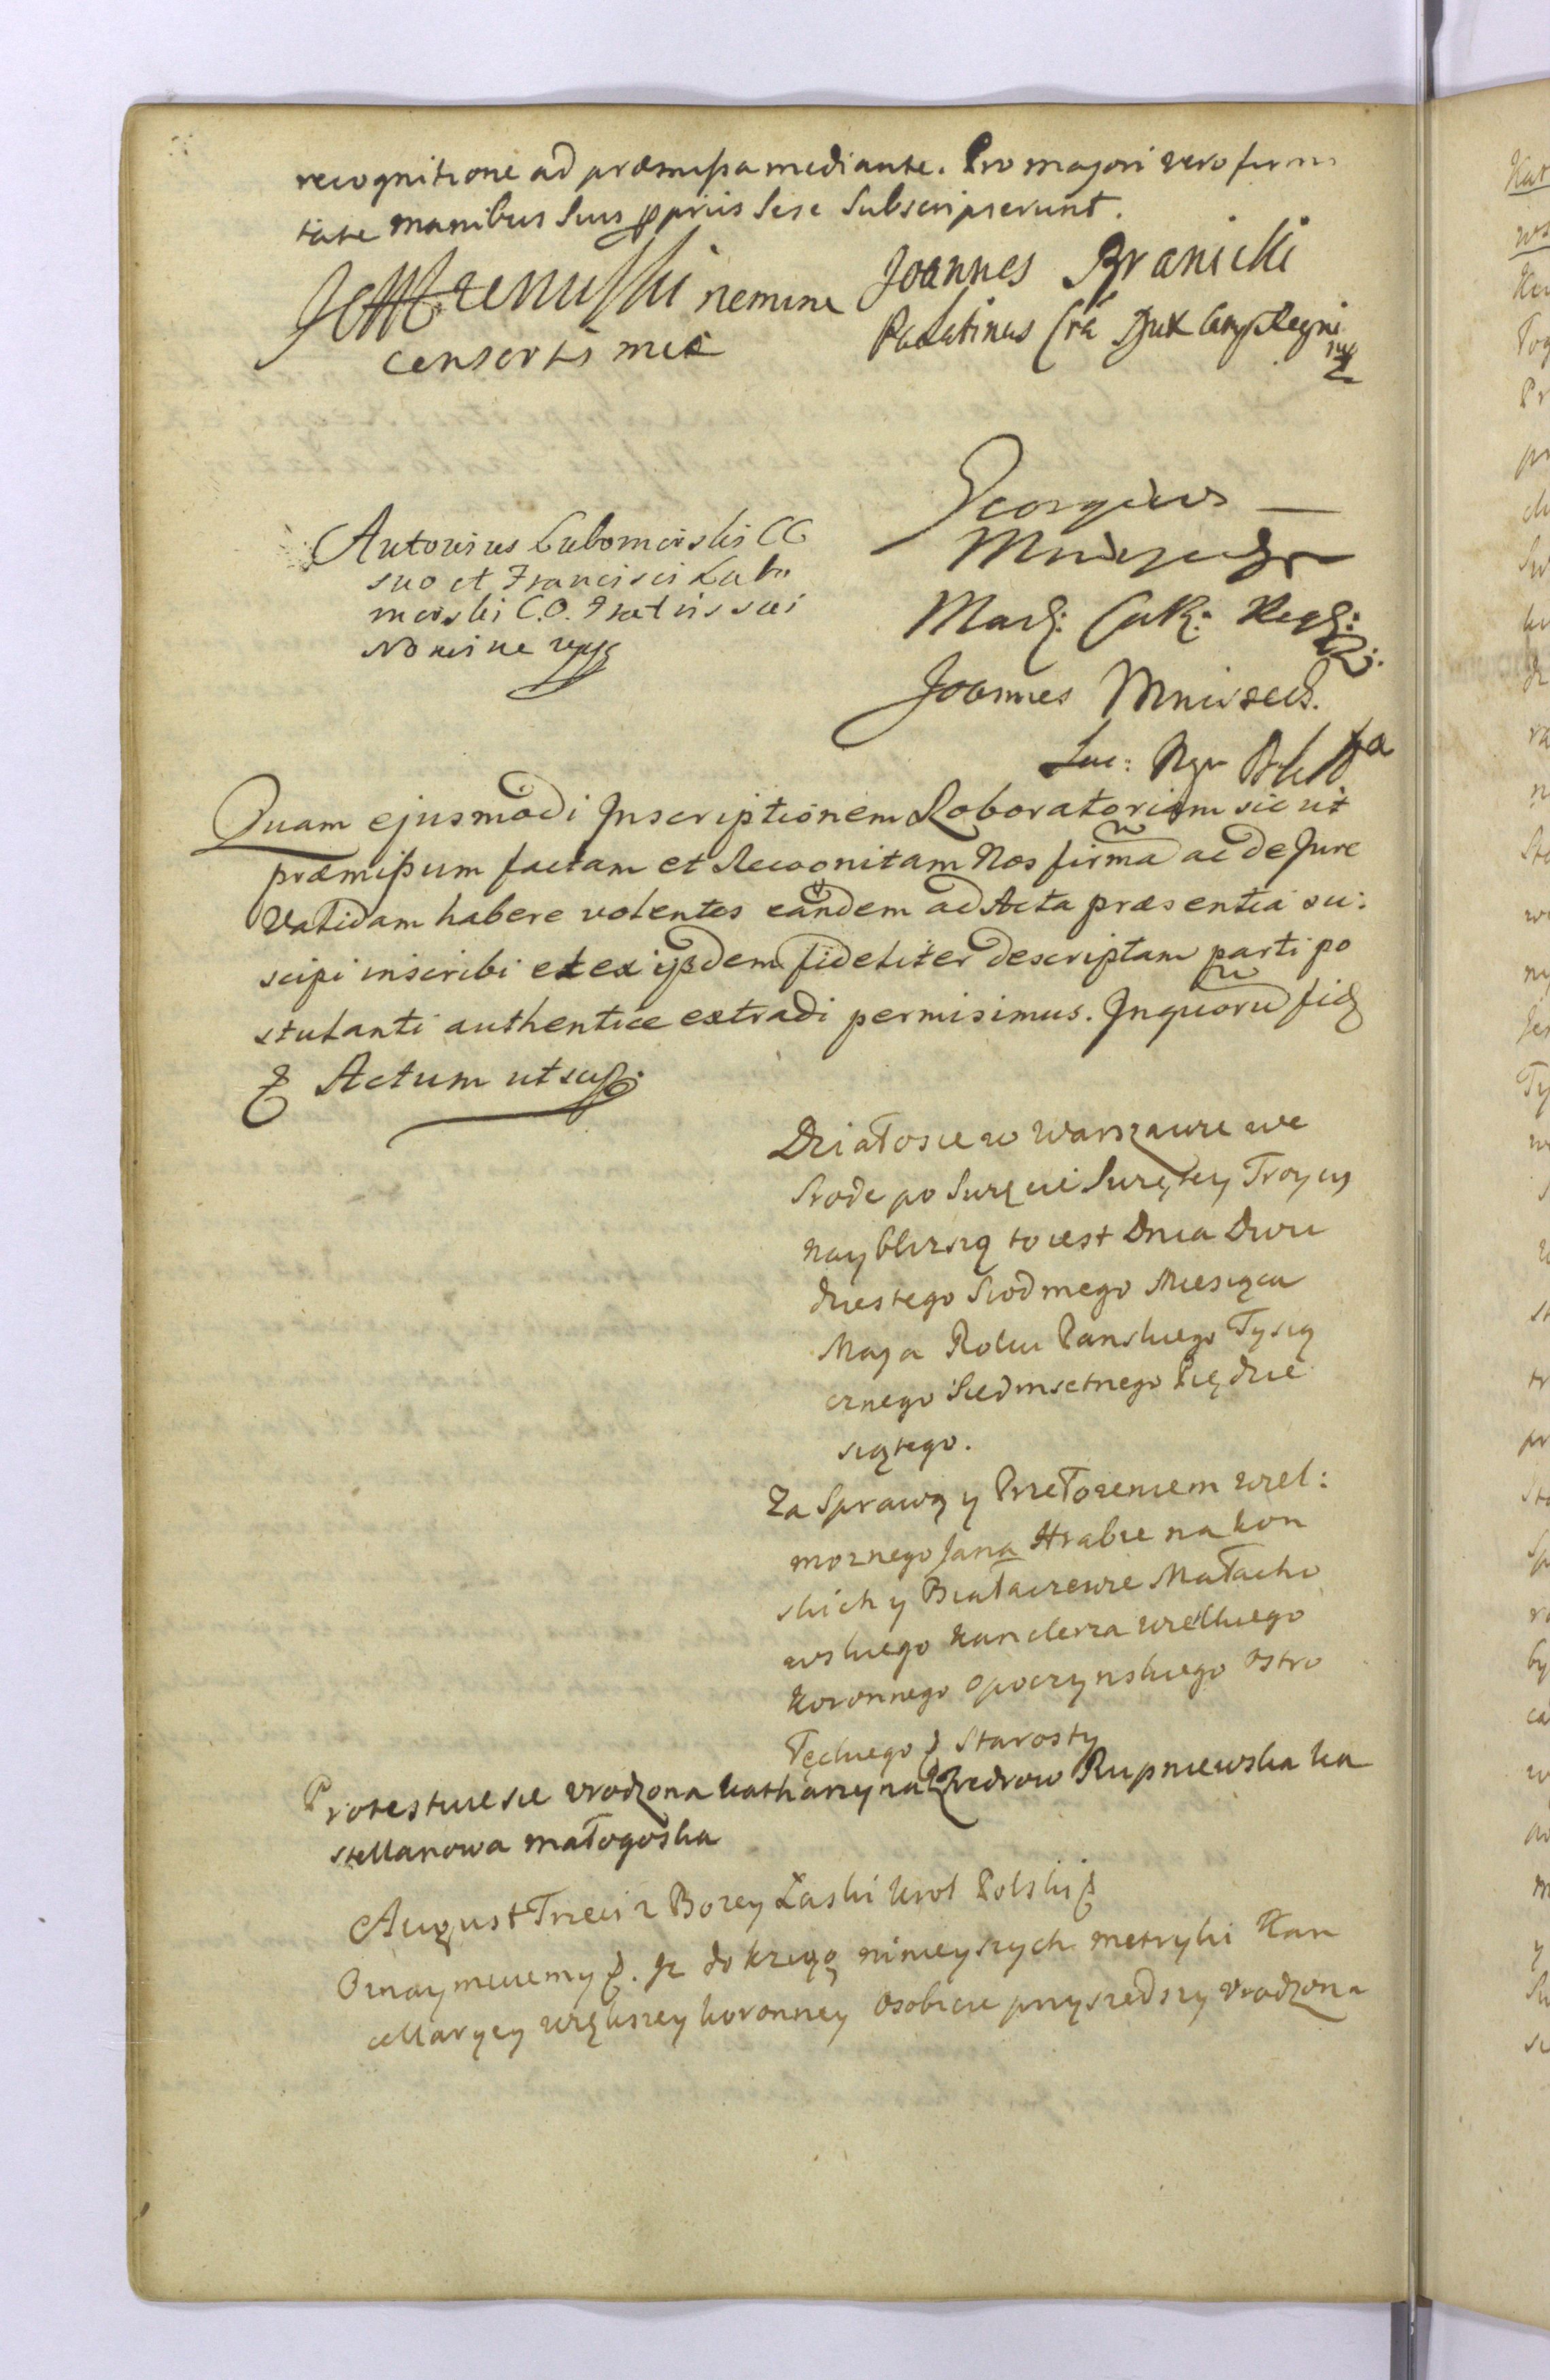 recognitione ad præmissa mediante. Pro majori vero firmi
tate manibus suis ppriis sese subscripserunt.
nomine
consortis meæ
Joannes Branicki
Palatinus Cra Dux Camp Regni
mp
Antonius Lubomirski CC
suo et Francisci Lubo
mirski C.O. Fratris sui
Nomine mpp
Georgius
Mniszech
Mars: Cur: Regni:
Joannes Mniszech
Suc:
Quam ejusmodi Inscriptionem Roboratoriam sic ut
præmissum factam et Recognitam Nos firmã ac de Jure
Validam habere volentes eandem ad Acta præsentia su:
scipi inscribi et ex ijsdem fideliter descriptam parti po
stulanti authentice extradi permisimus. In quorũ fid
& Actum ut sup.
Działo sie w Warszawie we
Srode po Swięcie Swiętey Troycy
naybliższą to iest Dnia Dwu
dziestego Siodmego Miesiąca
Maja Roku Panskiego Tysią
cznego Siedmsetnego Pięćdzie
siątego.
Za Sprawą y Przełożeniem wiel:
możnego Jana Hrabie na Kon
skich y Białaczewie Małacho
wskiego Kanclerza wielkiego
Koronnego Opoczynskiego Ostro
łęckiego & Starosty
Protestuie sie vrodzona Katharzyna z Fredrow Rupniewska ka
sztellanowa małogoska
August Trzeci z Bożey Łaski krol Polski &
Oznaymuiemy &. Iż do kziąg ninieyszych metryki Kan
cellaryey większey koronney osobiscie przyszedszy vrodzona